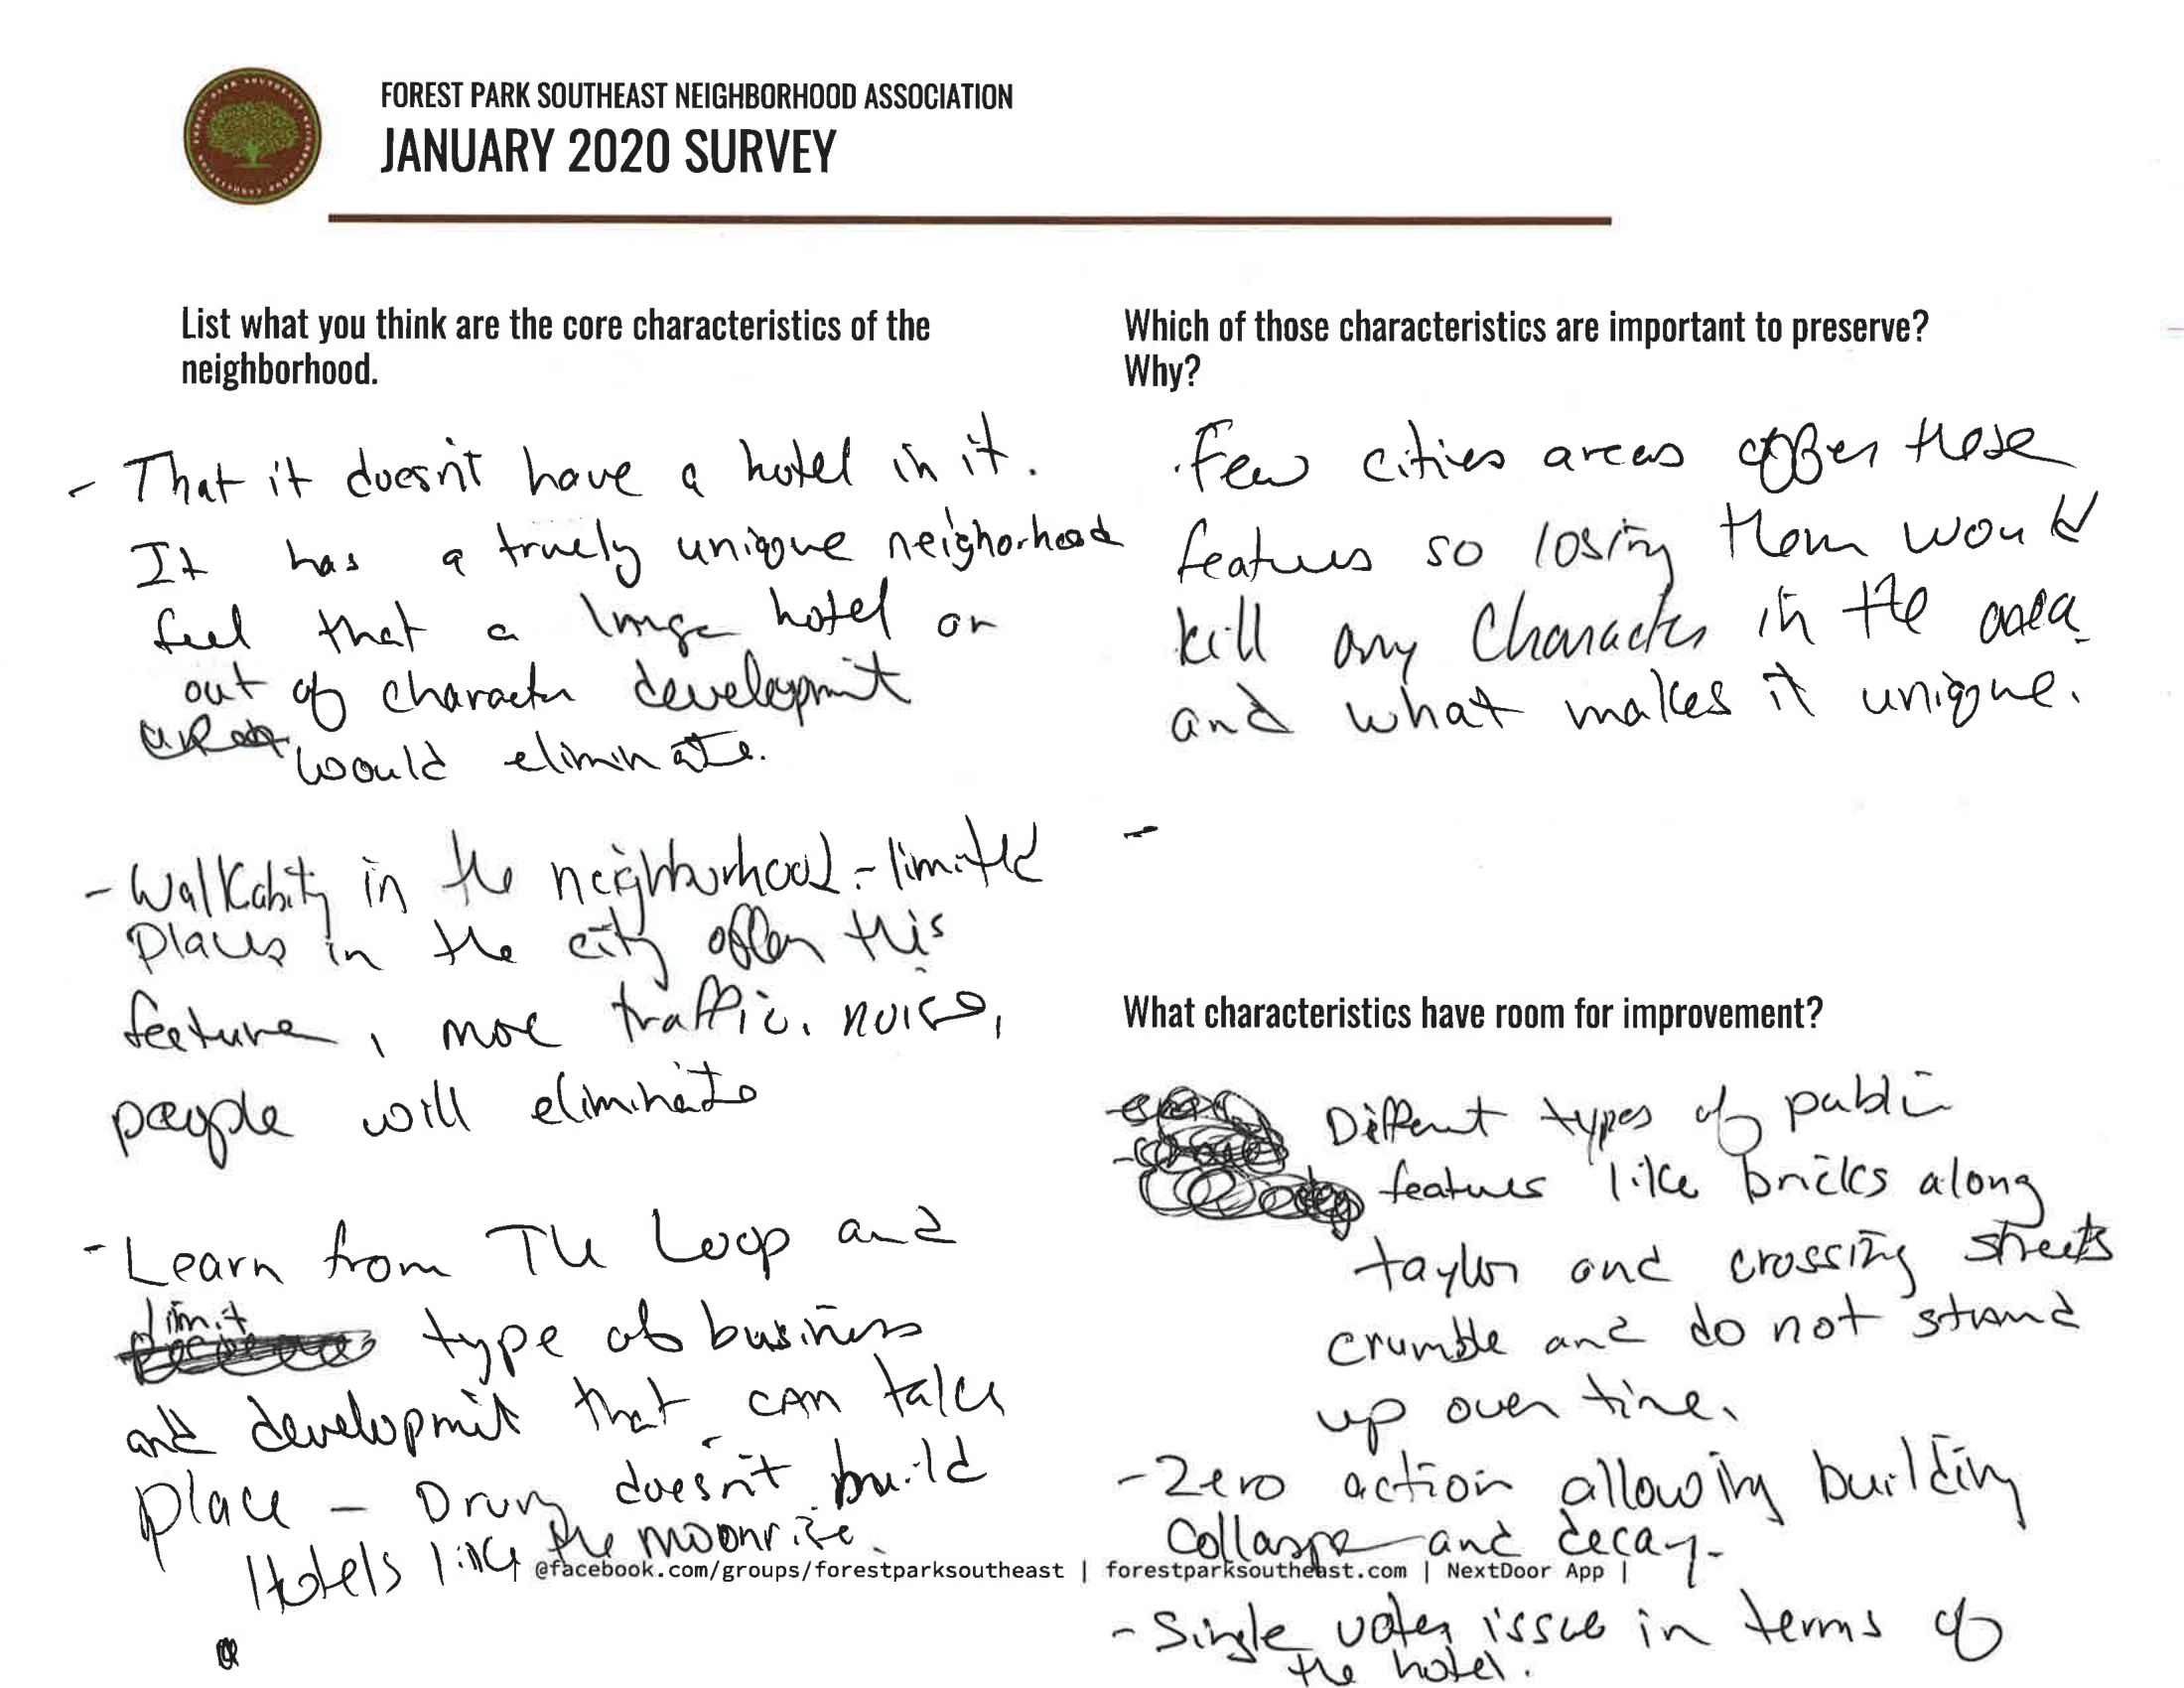 FOREST PARK SOUTHEAST NEIGHBORHOOD ASSOCIATION
JANUARY 2020 SURVEY
List what you think are the core characteristics of the
neighborhood.
- That it doesn't have a hotel in it.
It has a truely unique neighorhood
feel that a large hotel or
out of character development
would eliminate.
- Walkability in the neighborhood - limited
places in the city offer this
feature, more traffic, noise,
people will eliminate
- Learn from The Loop and
limit type of business
and development that can take
place - Drury doesn't build
Hotels like the moonrise.
Which of those characteristics are important to preserve?
Why?
Few cities areas offer these
features so losing them would
kill any character in the area
and what makes it unique.
-
What characteristics have room for improvement?
Different types of public
features like bricks along
taylor and crossing streets
crumble and do not stand
up over time.
- Zero action allowing building
collaspe and decay.
- Single voter issue in terms of
the hotel.
@facebook.com/groups/forestparksoutheast | forestparksoutheast.com | NextDoor App |